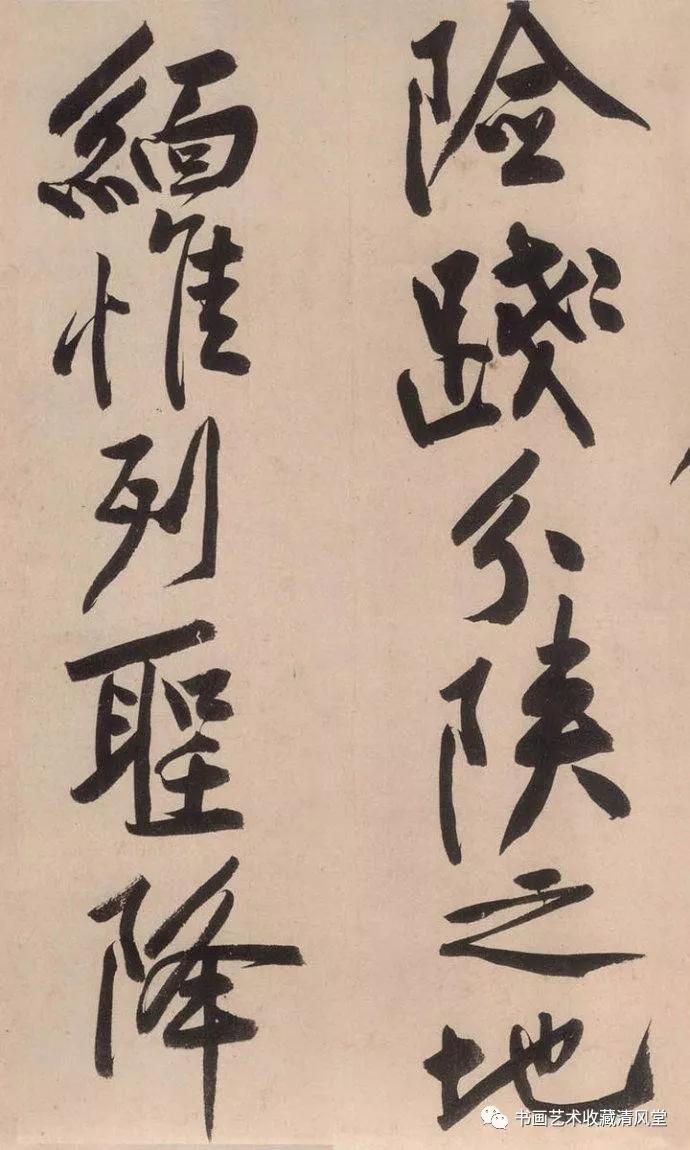 險踐分陝之地
緬惟列聖降
书画艺术收藏清风堂